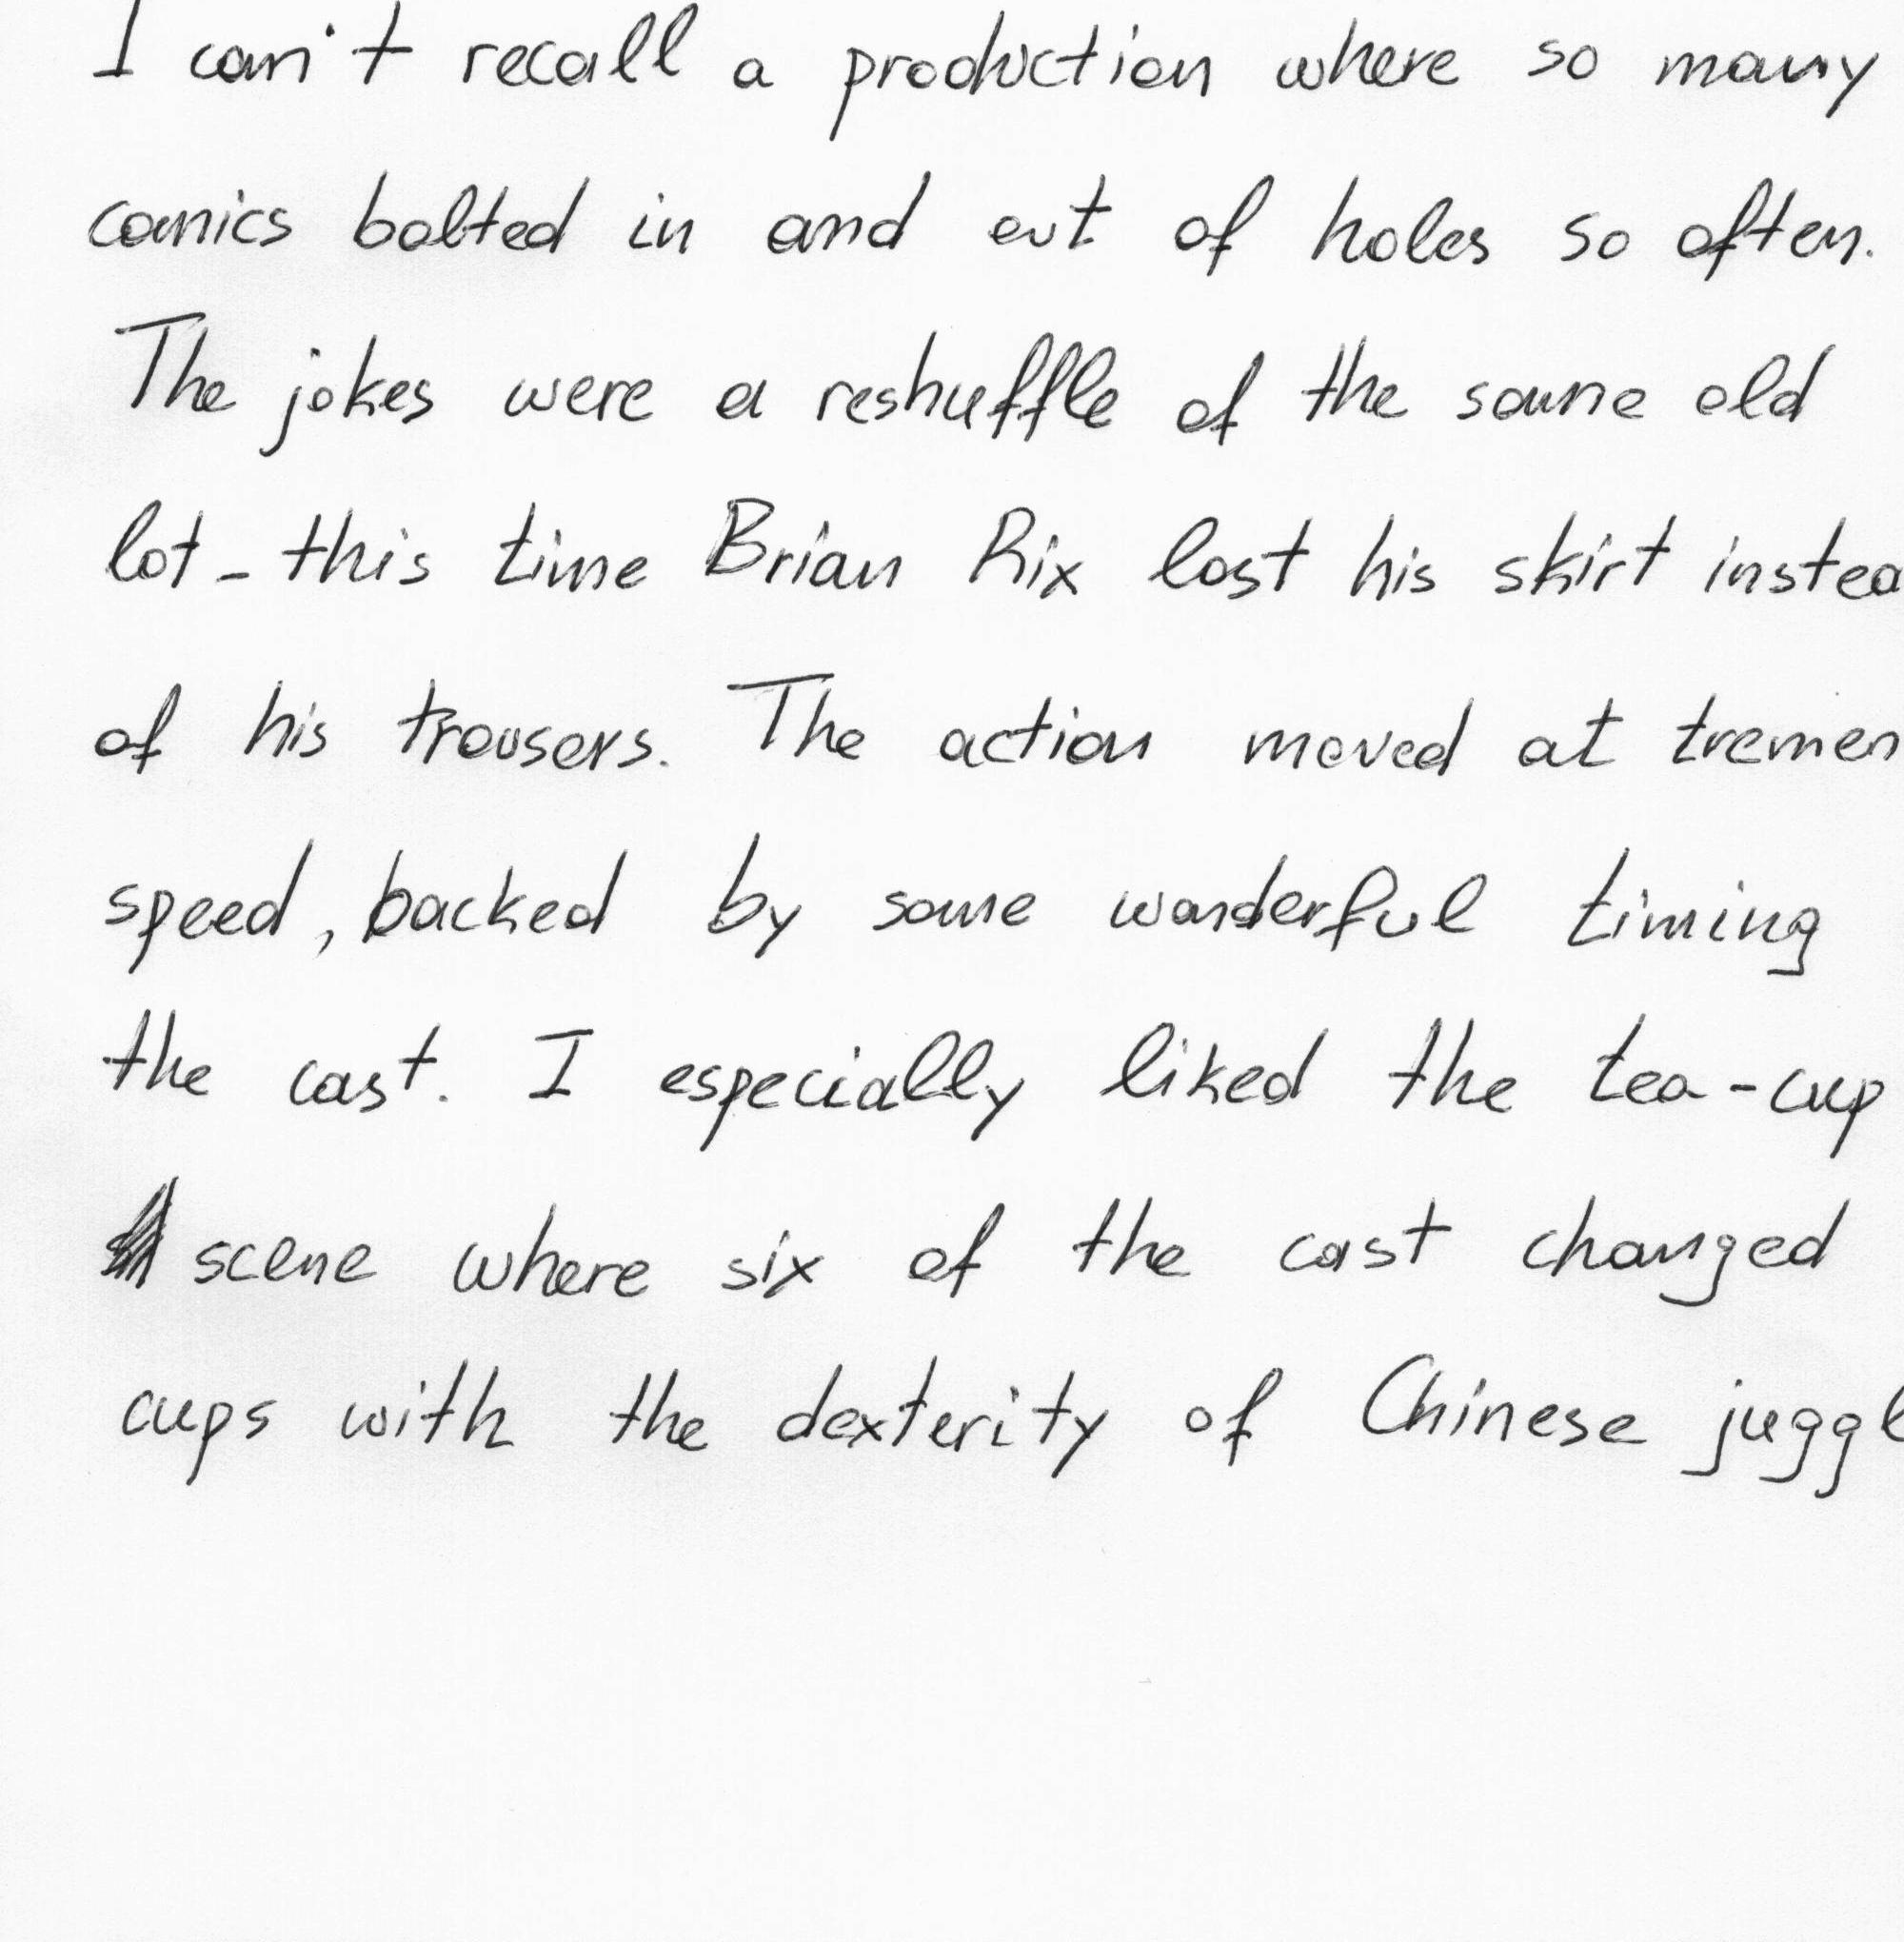 I can't recall a production where so many
comics bolted in and out of holes so often.
The jokes were a reshuffle of the same old
lot - this time Brian Rix lost his skirt instea
of his trousers. The action moved at tremen
speed, backed by some wonderful timing
the cast. I especially liked the tea-cup
scene where six of the cast changed
cups with the dexterity of Chinese juggl